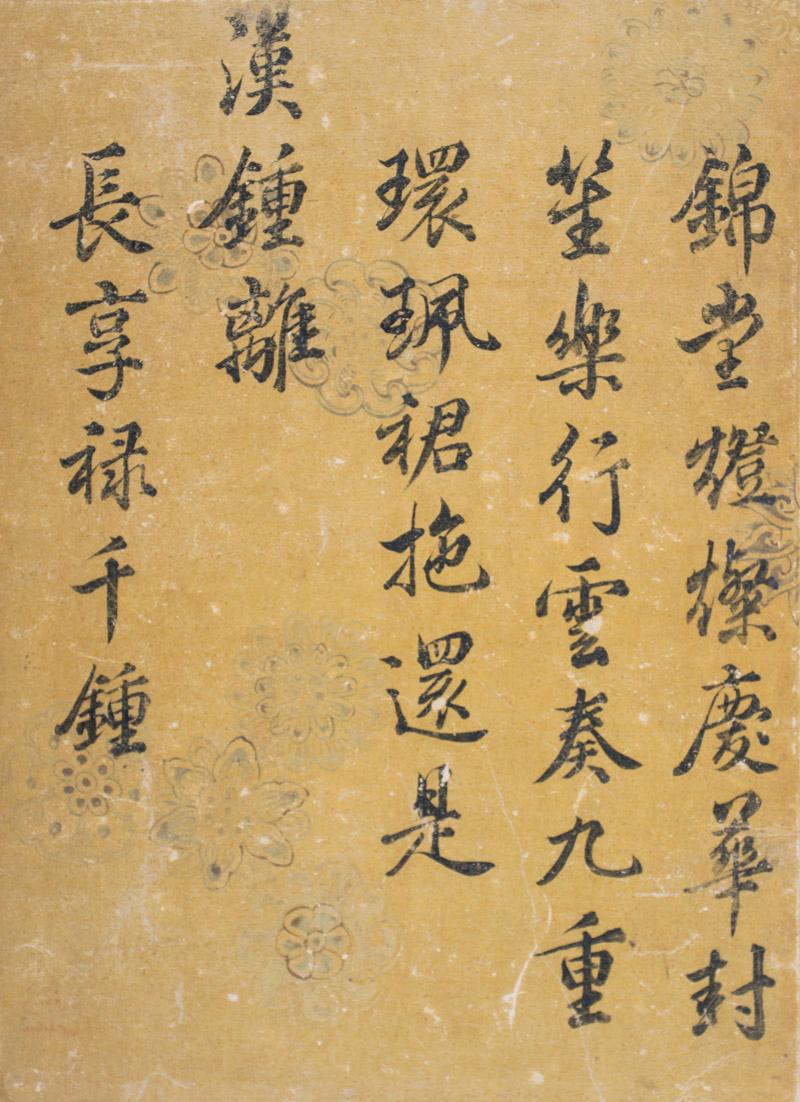 錦堂燈燦慶華封
笙樂行雲奏九重
環珮裙拖還是
漢鍾離
長享禄千鍾